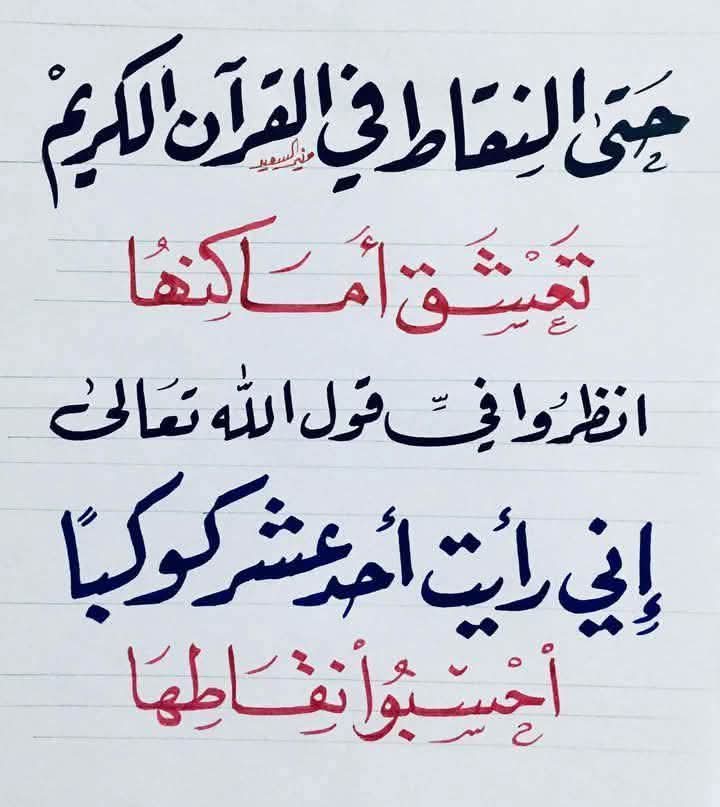 حَتىٰ النِقاط في القرآن الكريمْ
منير السعيد
تَعْشَق أَمَاكِنهُا
انظرُوا في قول الله تعَالىٰ
إِني رأيت أحد عشر كوكبًا
اْحْسبُواْ نِقَاطِهَا